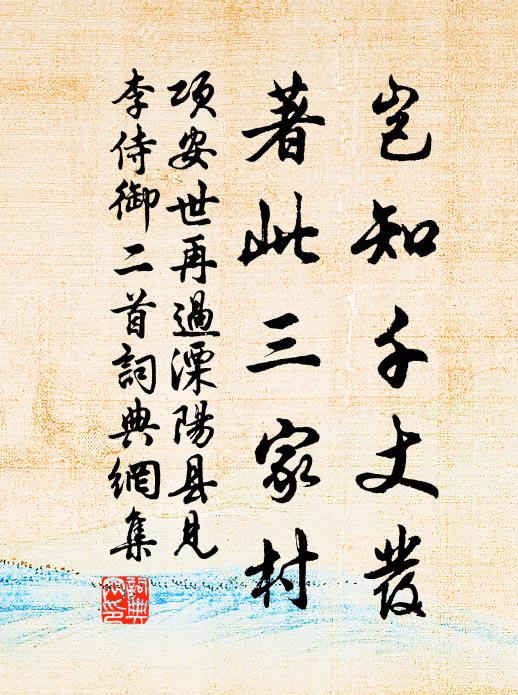 岂知千丈發
著此三家村
项安世再過溧陽县见
李侍御二首詞典網集